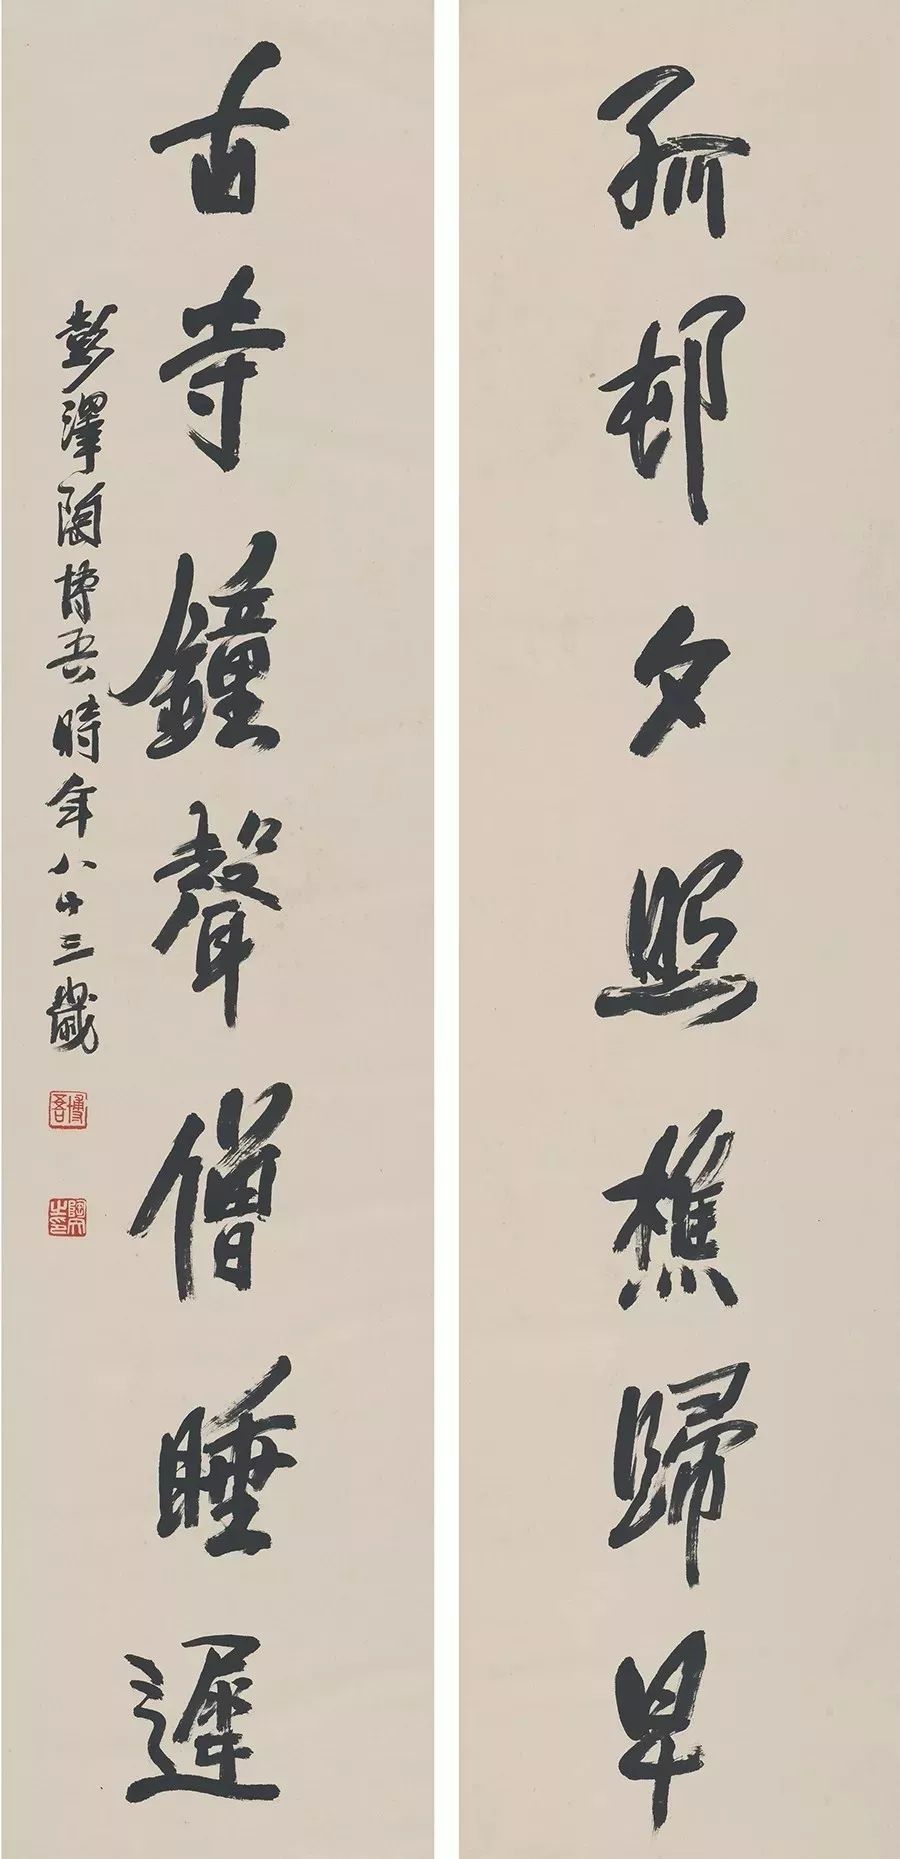 孤邨夕照樵歸早
古寺鐘聲僧睡遲
彭澤陶博吾時年八十三歲
博吾
陶之印